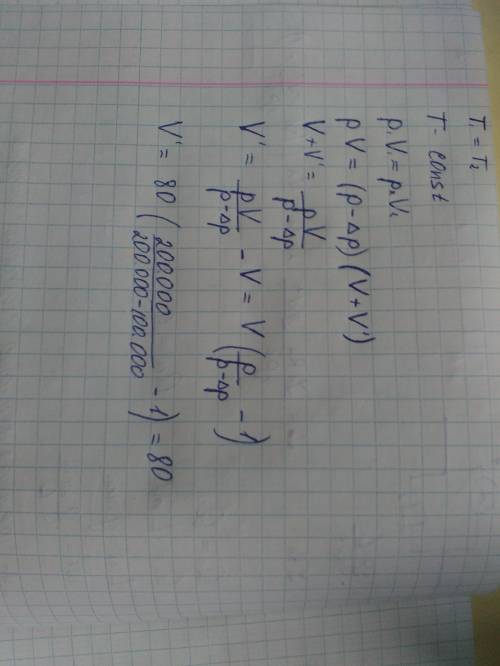 T₁ = T₂
T - const
p₁V₁ = p₂V₂
pV = (p-Δp)(V+V')
V+V' = pV/(p-Δp)
V' = pV/(p-Δp) - V = V (p/(p-Δp) - 1)
V' = 80 (200000/(200.000-100.000) - 1) = 80